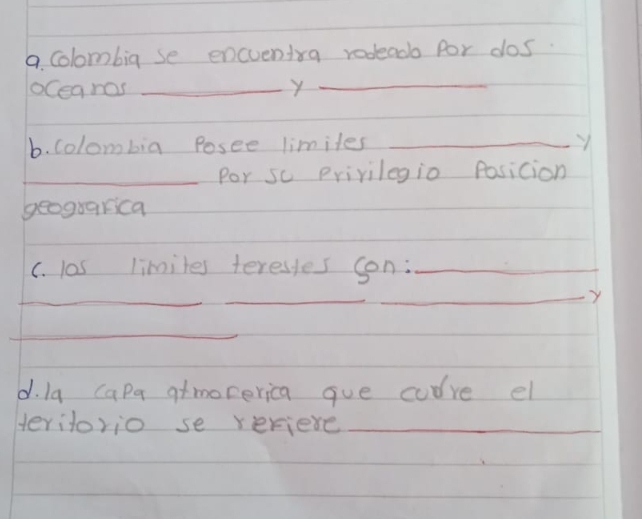 a. Colombia se encuentra rodeado por dos
oceanos __________ y __________
b. Colombia Posee limites __________ y
__________ Por su Privilegio Posicion
geografica
c. los limites terestes son: __________
__________ __________ __________ y
__________
d. la capa atmoferica que cubre el
teritorio se refiere __________